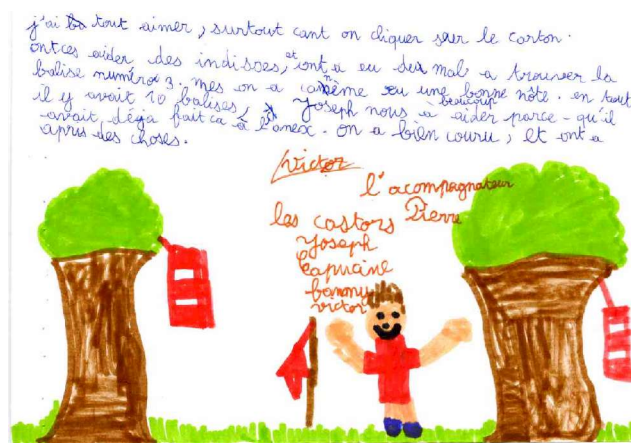 j'ai tout aimer, surtout cant on cliquer sur le carton.
ontces aider des indisoes, et ont a eu du mal a trouver la
balise numéro 3. mes on a canème eu une bonne nôte. en tout
il y avait 10 balises, Joseph nous a beaucoup aider parce-qu'il
avait déga fait ca à l'anex. on a bien couru, et ont a
apris des choses.
Victor
l'acompagnateur
Pierre
les castors
Joseph
Capucine
bammy
victor